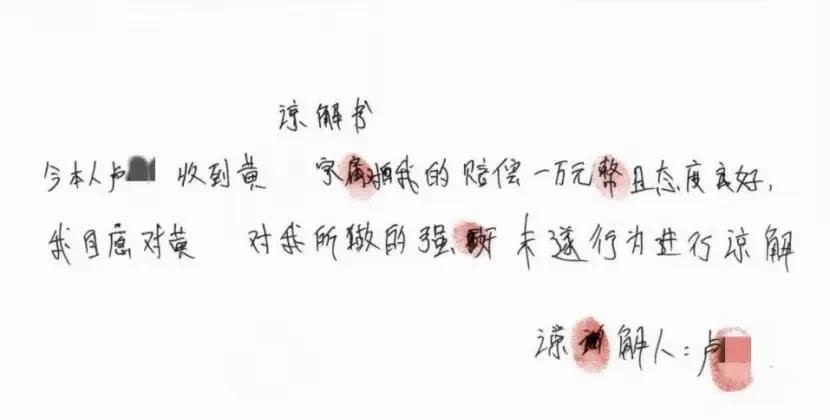 谅解书
今本人卢 收到黄 家属对我的赔偿一万元整且态度良好,
我自愿对黄 对我所做的强奸未遂行为进行谅解
谅解人:卢